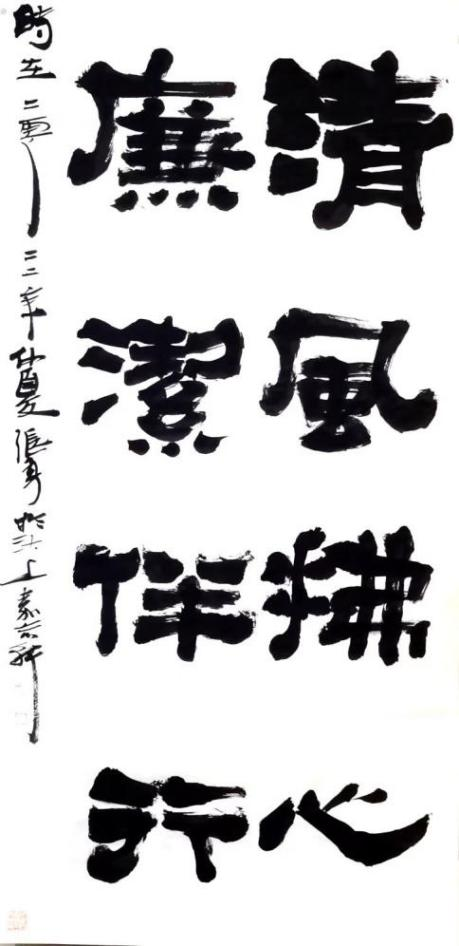 清風拂心
廉潔伴行
時在二零二二年仲夏張勇於江上